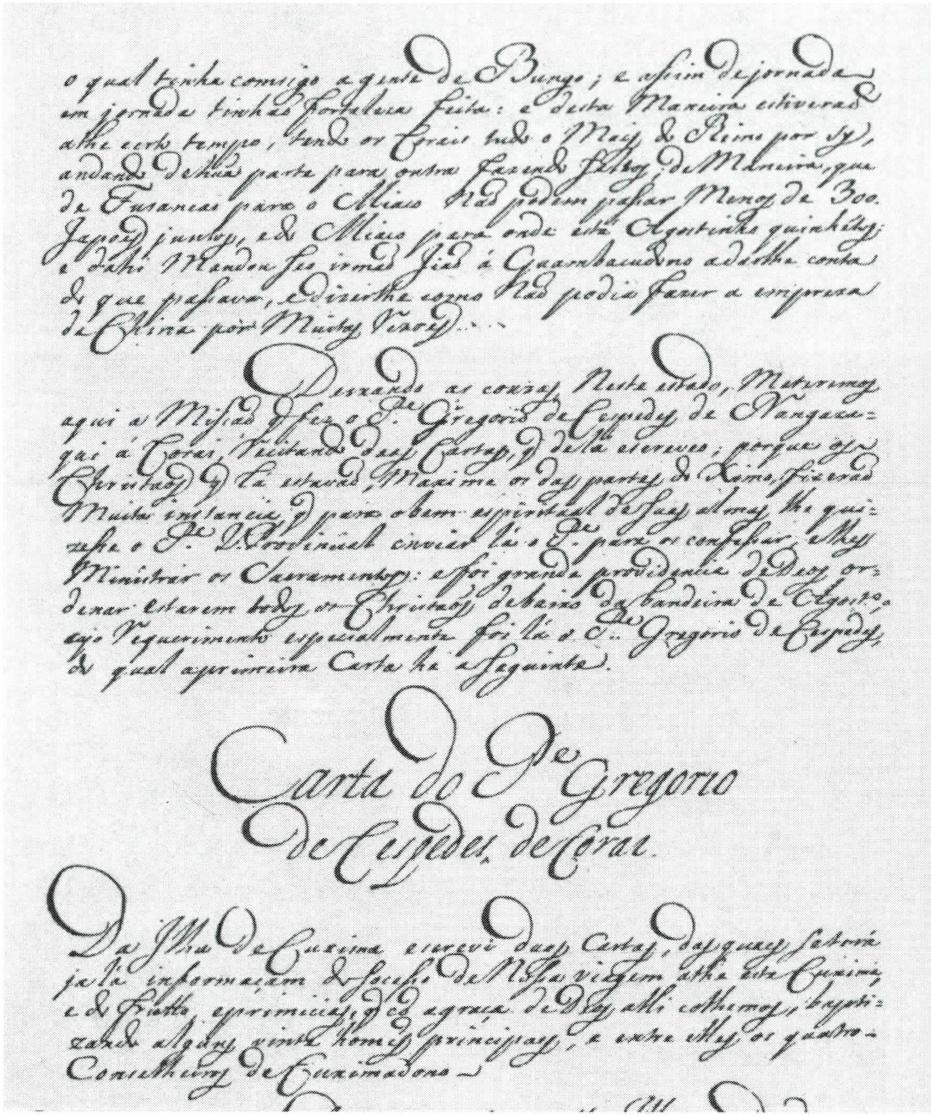 o qual tinha comsigo a gente de Bungo; e assim de jornada
em jornada tinhaõ fortaleza feita: e desta Maneira estiveraõ
athe certo tempo, tendo os Corais tudo o Mais do Reino por sy,
andando de hũa parte para outra fazendo saltos; de Maneira, que
de Fusancai para o Miaco Naõ podem passar Menos de 300.
Japoẽs juntos, e do Miaco para onde está Agostinho quinhẽtos:
e dahi Mandou seo irmaõ Jiaõ á Quambacudono a darlhe conta
do que passava, e dizerlhe como Naõ podia fazer a empreza
da China por Muitas Rezoẽs...
Deixando as couzas Neste estado, Meteremos
aqui a Missaõ q̃ fez o P.e Gregorio de Cespedes de Nangaza-
qui á Corai, recitando duas Cartas, q̃ de lá escreveo; porque os
Christaõs q̃ lá estavaõ Maxime os das partes do Ximo, fizeraõ
Muita instancia, q̃ para o bem espiritual de suas almas lhe qui-
zesse o P.e V. Provincial enviar lá o P.e para os confessar, e lhes
Ministrar os Sacramentos: e foi grande providencia de Deos or-
denar estarem todos os Christaõs debaixo da bandeira de Agost.o,
cujo requerimento especialmente foi lá o P.e Gregorio de Cespedes,
do qual a primeira Carta he a seguinte.
Carta do P.e Gregorio
de Cespedes, de Corai.
Da Ilha de Çuxima escrevi duas Cartas, das quaes se terá
já lá informaçam do socesso de Nossa viagem athe esta Çuxima,
e do fructo, e primicias, q̃ cõ a graça de Deos alli colhemos, bapti-
zando alguns vinte homẽs principaes, e entre elles os quatro
Conselheiros de Çuximadono